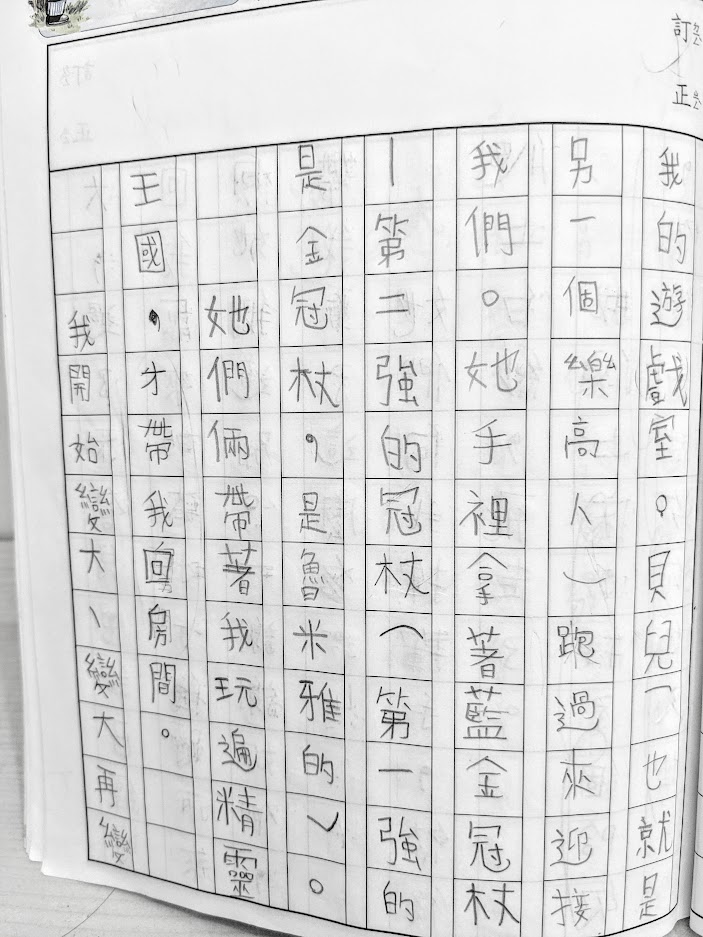 訂
正
我的遊戲室。貝兒︵也就是
另一個樂高人︶跑過來迎接
我們。她手裡拿著藍金冠杖
—第二強的冠杖︵第一強的
是金冠杖，是魯米雅的︶。
她們倆帶著我玩遍精靈
王國，才帶我回房間。
我開始變大、變大再變